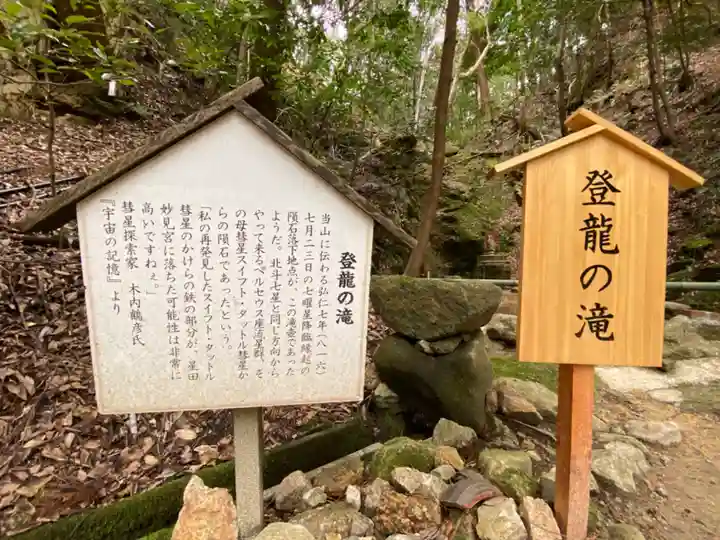 登龍の滝
当山に伝わる弘仁七年(八一六)
七月二三日の七曜星降臨縁起の
隕石落下地点が、この滝壺であった
ようだ。北斗七星と同じ方向から
やって来るペルセウス座流星群、そ
の母彗星スイフト・タットル彗星か
らの隕石であったという。
「私の再発見したスイフト・タットル
彗星のかけらの鉄の部分が、星田
妙見宮に落ちた可能性は非常に
高いですねェ。」
彗星探索家 木内鶴彦氏
『宇宙の記憶』より
登龍の滝